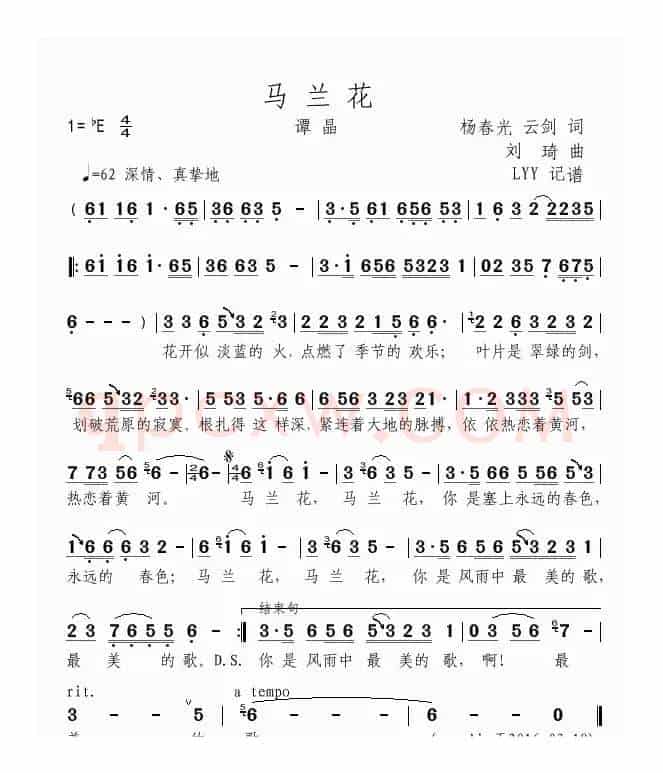 马 兰 花
1= ♭E 4/4 谭 晶 杨春光 云剑 词
刘 琦 曲
♩=62 深情、真挚地 LYY 记谱
( 61 16 1 · 65 | 36 63 5 - | 3·5 61 656 53 | 1 6 3 2 2235 |
‖: 61 16 1· 65 | 36 63 5 - | 3·1 656 5323 1 | 02 35 7 675 |
6 - - - ) | 3 3 6 5 3 2 3 | 2 2 3 2 1 5 6 6· | 2 2 6 3 2 3 2 |
花开似 淡蓝的 火, 点燃了 季节的 欢乐; 叶片是 翠绿的剑,
5 66 5 32 2 33· | 5 53 5·6 6 | 6 3 2 3 2 2· | 5 5 5 3 2 3 2 |
划破荒原的寂寞。根扎得 这 样深, 紧连着大地的脉搏, 依 依热恋着黄河,
7 73 56 5 6 - | 2/4 6 - | 4/4 6 1 6 1 - | 3 3 6 6 - | 5·6 6 5 5 6 5 3 |
热恋着黄 河。 马 兰 花, 马 兰 花, 你 是塞上永远的春色,
1 6 6 6 3 2 - | 6 1 6 1 - | 3 3 6 5 - | 3·5 6 5 6 5 3 2 3 |
永远的 春色; 马 兰 花, 马 兰 花, 你 是 风雨中 最 美的 歌,
结束句
2 3 7 6 5 5 6 - :‖ 3·5 6 5 6 5 3 2 2 3 1 | 0 3 5 6 6 7 - |
最 美 的 歌。D.S. 你 是 风雨中 最 美的 歌, 啊! 最
rit. a tempo
3 - - 5 | 5 6 - - - | 6 - - 0 ‖